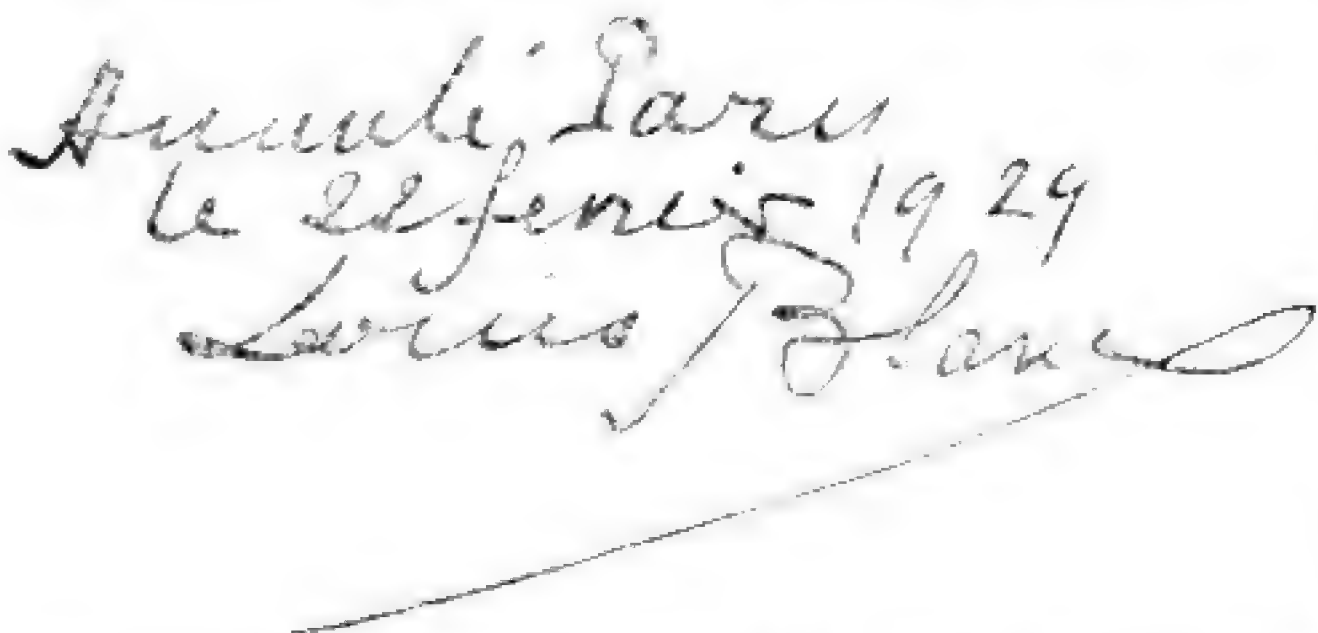 Annulé Paris
le 22 fevrier 1929
Louis Blanc